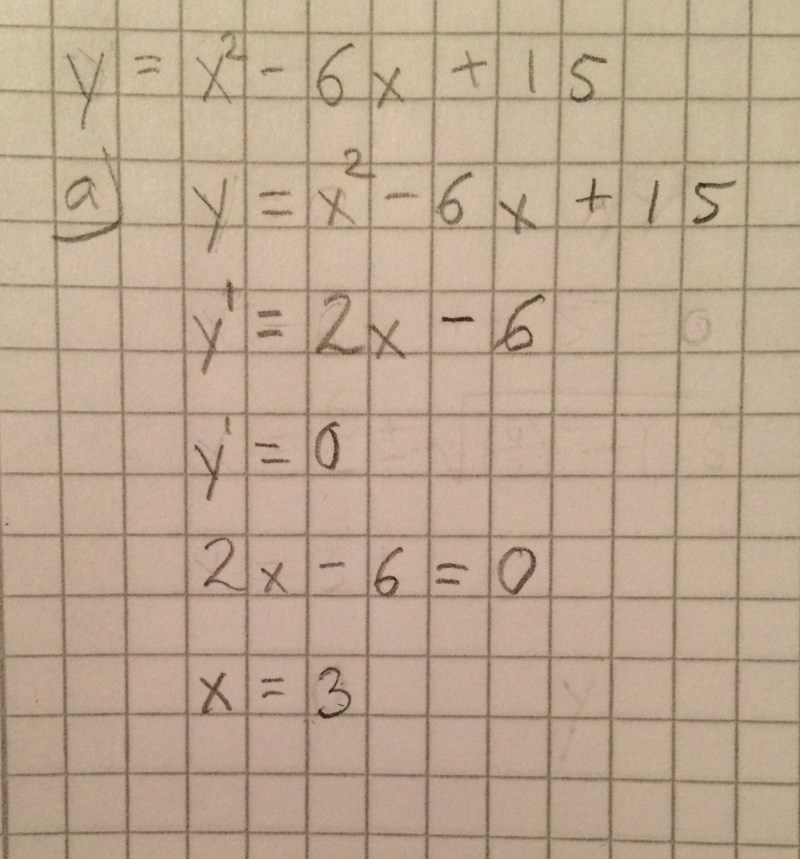 y = x² - 6x + 15
a) y = x² - 6x + 15
y' = 2x - 6
y' = 0
2x - 6 = 0
x = 3